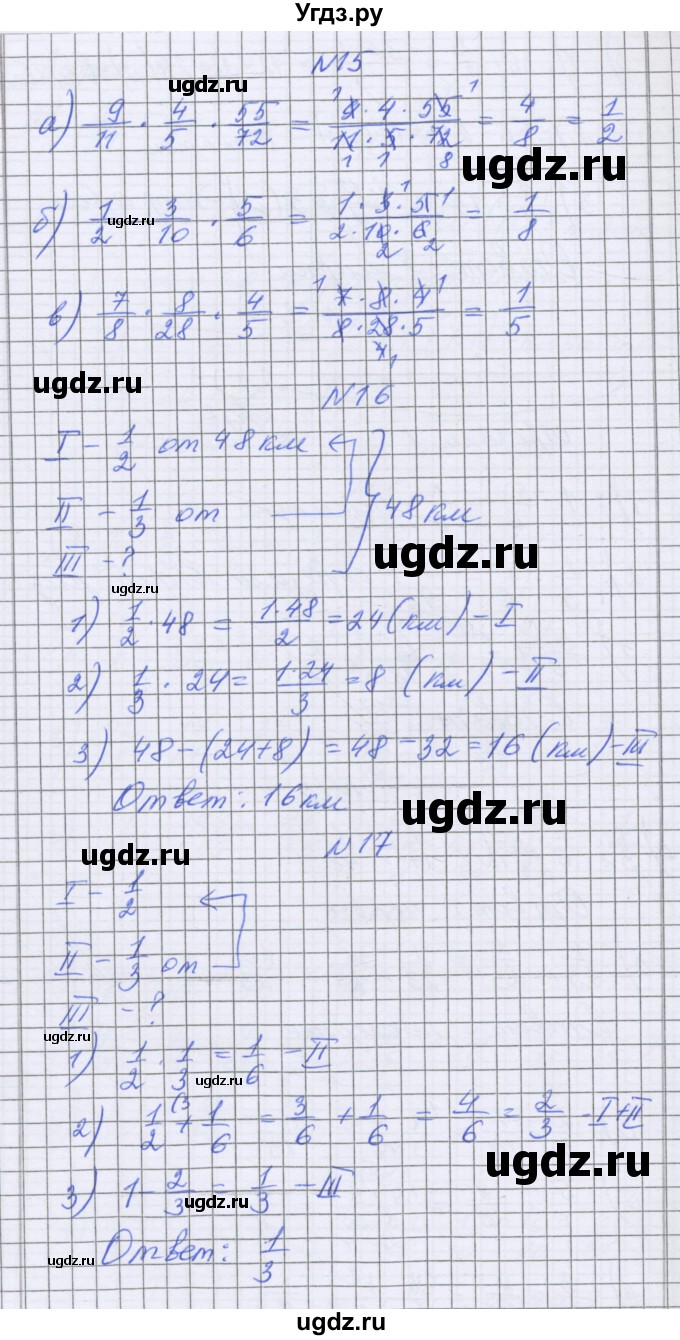 Угдз.ру
№15
ugdz.ru
а) 9/11 · 4/5 · 55/72 = 9·4·55/11·5·72 = 4/8 = 1/2
ugdz.ru
б) 1/2 · 3/10 · 5/6 = 1·3·5/2·10·6 = 1/8
ugdz.ru
в) 7/8 · 8/28 · 4/5 = 7·8·4/8·28·5 = 1/5
ugdz.ru
№16
I – 1/2 от 48 км
II – 1/3 от
48 км
III – ?
ugdz.ru
ugdz.ru
1) 1/2 · 48 = 1·48/2 = 24 (км) – I
2) 1/3 · 24 = 1·24/3 = 8 (км) – II
3) 48 – (24+8) = 48 – 32 = 16 (км) – III
Ответ: 16 км
ugdz.ru
№17
ugdz.ru
I – 1/2
II – 1/3 от
III – ?
ugdz.ru
1) 1/2 · 1/3 = 1/6 – II
ugdz.ru
2) 1/2 (3 + 1/6 = 3/6 + 1/6 = 4/6 = 2/3 – I+II
ugdz.ru
3) 1 – 2/3 = 1/3 – III
ugdz.ru
Ответ: 1/3
ugdz.ru
ugdz.ru